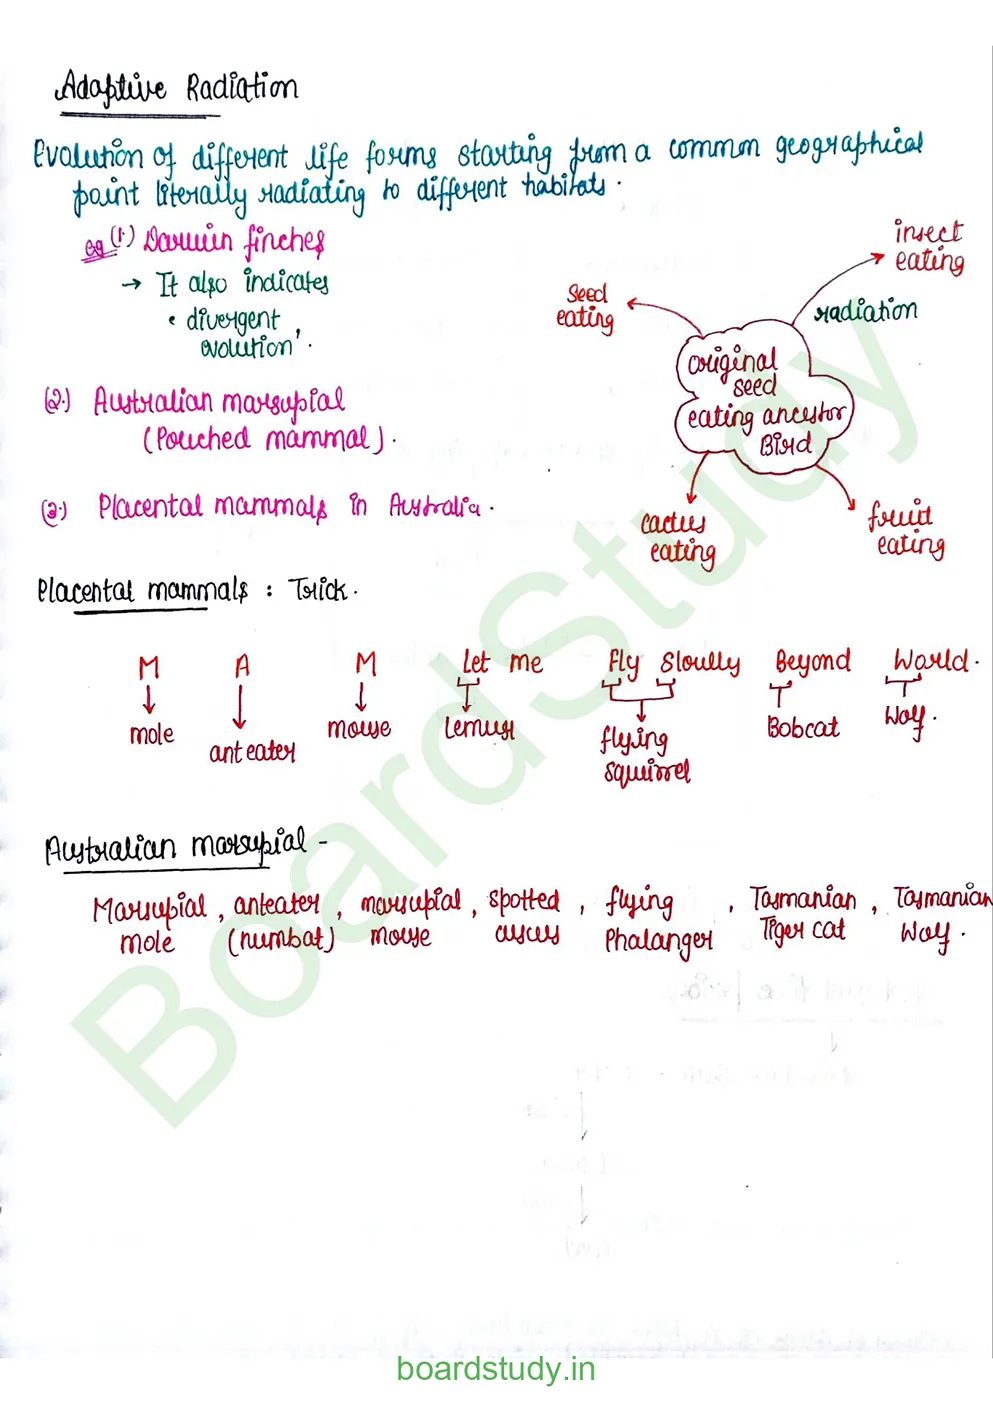 Adaptive Radiation
Evolution of different life forms starting from a common geographical
point literally radiating to different habitats.
eg (1.) Darwin finches
→ It also indicates
• divergent
evolution'.
insect
eating
radiation
seed
eating
original
seed
eating ancestor
Bird
cactus
eating
fruit
eating
(2.) Australian marsupial
(Pouched mammal).
(3.) Placental mammals in Australia.
Placental mammals : Trick.
M A M Let me Fly Slowly Beyond World.
mole ant eater mouse Lemur flying squirrel Bobcat Wolf.
Australian marsupial -
Marsupial , anteater , marsupial , spotted , flying , Tasmanian , Tasmanian
mole (numbat) mouse cuscus Phalanger Tiger cat Wolf.
BoardStudy
boardstudy.in